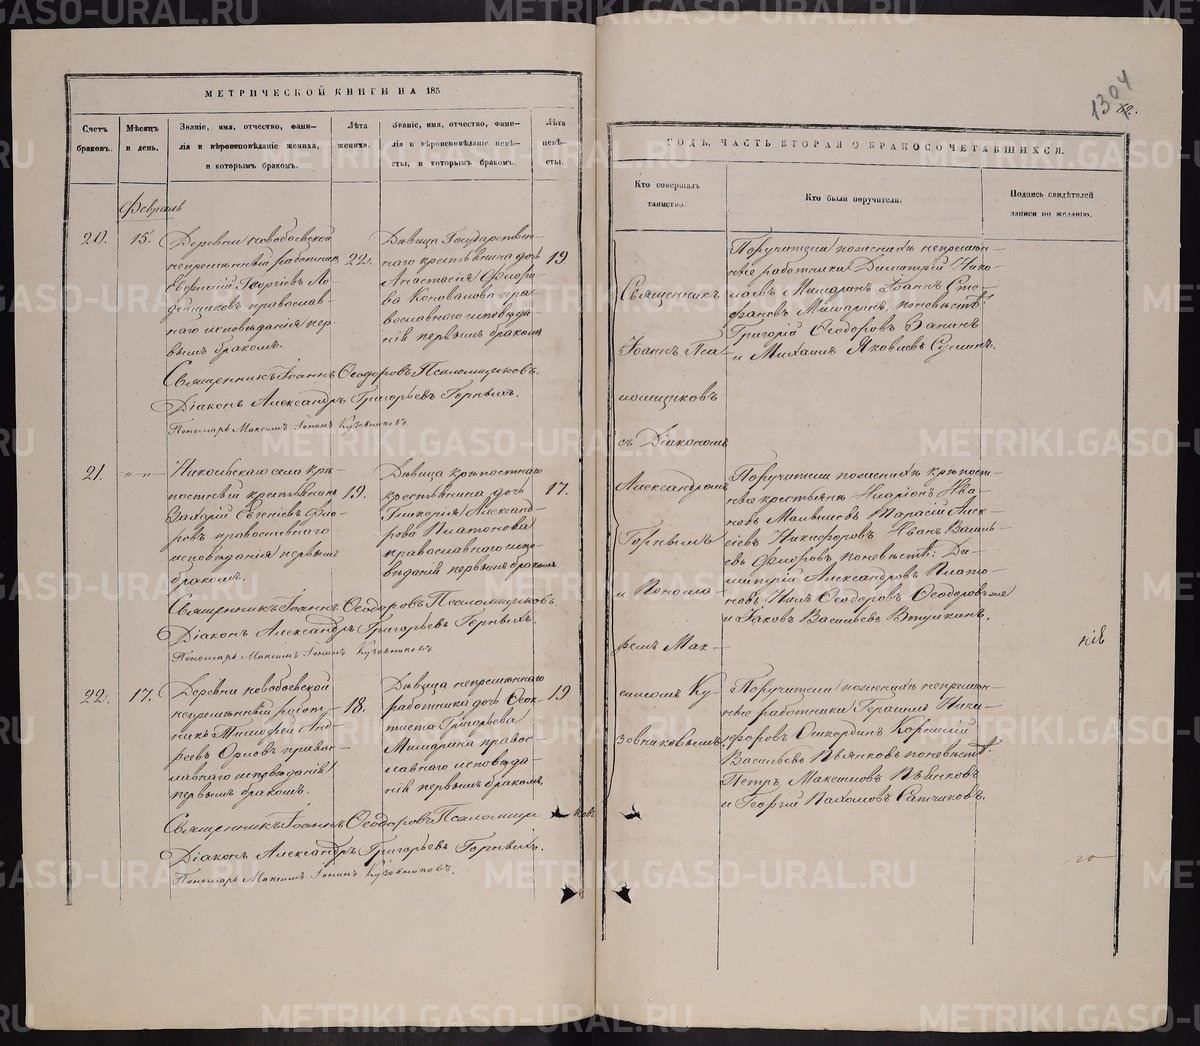 МЕТРИЧЕСКОЙ КНИГИ НА 185
Счетъ браковъ.
Мѣсяцъ и день.
Званіе, имя, отчество, фами-
лія и вѣроисповѣданіе жениха,
и которымъ бракомъ.
Лѣта жениха.
Званіе, имя, отчество, фами-
лія и вѣроисповѣданіе невѣ-
сты, и которымъ бракомъ.
Лѣта невѣ-
сты.
Февраль
20.
15.
Деревни Новобоевской
непремѣнный работникъ
Георгіевъ
православ-
наго исповѣданія пер
вымъ бракомъ.
22.
Дѣвица Государствен-
наго крестьянина дочь
Анастасія Флоро-
ва Коновалова пра-
вославнаго исповѣда
нія первымъ бракомъ
19
Священникъ Іоаннъ Ѳеодоровъ Псаломщиковъ.
Діаконъ Александръ Григорьевъ Горныхъ.
Пономарь Максимъ Іонинъ Кузовниковъ
21.
" "
Николаевскаго села крѣ-
постный крестьянинъ
Захарій Евгеніевъ Фло-
ровъ православнаго
исповѣданія первымъ
бракомъ.
19.
Дѣвица крѣпостнаго
крестьянина дочь
Гликерія Александ-
рова Платонова
православнаго испо-
вѣданія первымъ бракомъ
17.
Священникъ Іоаннъ Ѳеодоровъ Псаломщиковъ
Діаконъ Александръ Григорьевъ Горныхъ.
Пономарь Максимъ Іонинъ Кузовниковъ
22.
17.
Деревни Новобоевской
непремѣнный работ-
никъ Тимофей Анд-
реевъ Орловъ правос-
лавнаго исповѣданія
первымъ бракомъ.
18.
Дѣвица непремѣннаго
работника дочь Ѳеок-
тиста Григорьева
Мимарина правос-
лавнаго исповѣда-
нія первымъ бракомъ.
19
Священникъ Іоаннъ Ѳеодоровъ Псаломщи ковъ
Діаконъ Александръ Григорьевъ Горныхъ.
Пономарь Максимъ Іонинъ Кузовниковъ.
1304
ГОДЪ, ЧАСТЬ ВТОРАЯ О БРАКОСОЧЕТАВШИХСЯ.
Кто совершалъ
таинство.
Кто были поручители.
Подпись свидѣтелей
записи по желанію.
Священникъ
Іоаннъ Пса
ломщиковъ
съ Діакономъ
Александромъ
Горнымъ
и Понома-
ремъ Мак-
симомъ Ку-
зовниковымъ.
Поручители по женихѣ непремѣн-
ные работники Димитрій Нико-
лаевъ Мимаринъ Іоаннъ Сте-
фановъ Мимаринъ, по невѣстѣ:
Григорій Ѳеодоровъ Ванинъ
и Михаилъ Яковлевъ Суминъ.
Поручители по женихѣ крѣпост-
ные крестьяне Иларіонъ Ива-
новъ Тарасій Алек-
сіевъ Никифоровъ Иванъ Василь-
евъ Флоровъ по невѣстѣ: Ди-
митрій Александровъ Плато-
новъ Ѳеодоровъ Ѳеодоровъ же
и Іаковъ Васильевъ Втулкинъ.
Поручители по женихѣ непремѣн-
ные работники Герасимъ Ники-
форовъ Корнилій
Васильевъ Пьянковъ по невѣстѣ:
Петръ Максимовъ Пьянковъ
и Георгій Пахомовъ Ситчиковъ.
ніе
го
METRIKI.GASO-URAL.RU